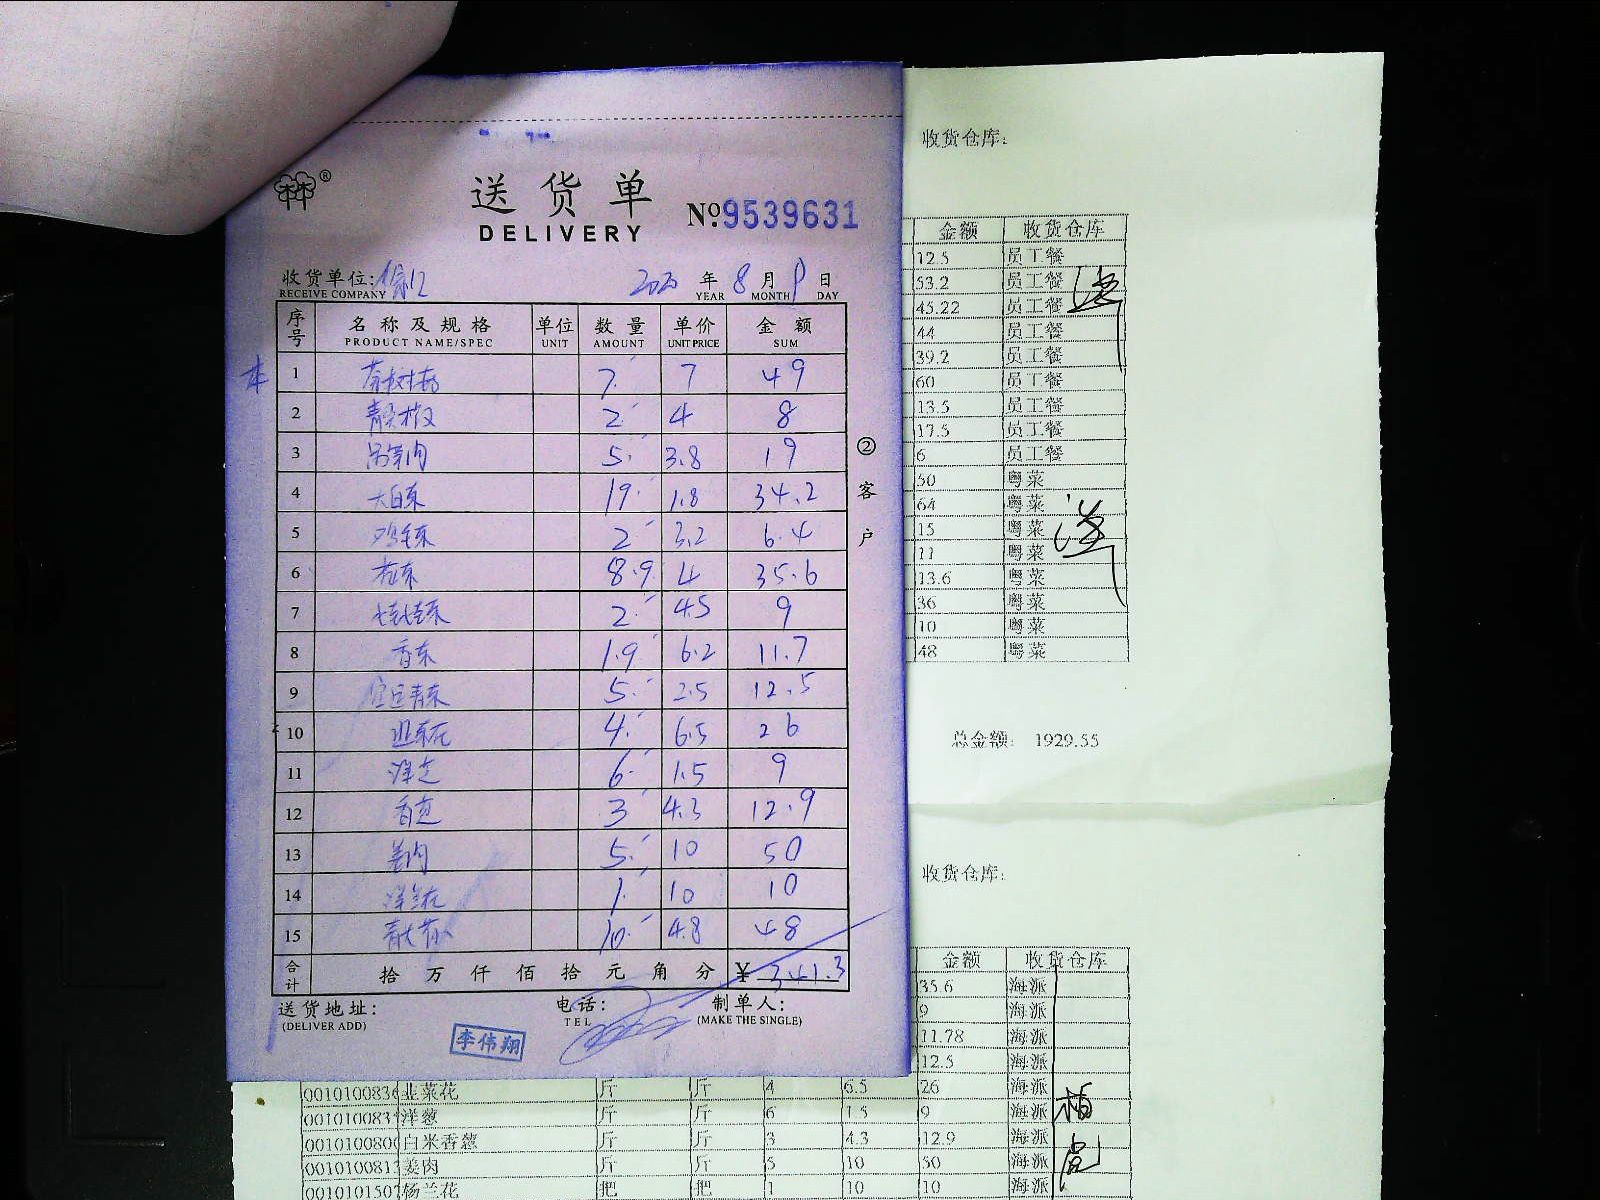 送货单
DELIVERY
№ 9539631
收货单位:
RECEIVE COMPANY
2020 年 8 月 日
YEAR MONTH DAY
序号 名称及规格 单位 数量 单价 金额
PRODUCT NAME/SPEC UNIT AMOUNT UNIT PRICE SUM
1 茶树菇 7. 7 49
2 青尖椒 2 4 8
3 5. 3.8 19
4 大白菜 19. 1.8 34.2
5 鸡毛菜 2 3.2 6.4
6 8.9 4 35.6
7 2. 4.5 9
8 香菜 1.9 6.2 11.7
9 5. 2.5 12.5
10 韭菜花 4. 6.5 26
11 洋芝 6. 1.5 9
12 香芝 3 4.3 12.9
13 姜肉 5. 10 50
14 洋兰花 1. 10 10
15 10. 4.8 48
合计 拾 万 仟 佰 拾 元 角 分 ¥ 341.3
送货地址: 电话: 制单人:
(DELIVER ADD) TEL (MAKE THE SINGLE)
李伟翔
②客户
收货仓库:
金额 收货仓库
12.5 员工餐
53.2 员工餐
45.22 员工餐
44 员工餐
39.2 员工餐
60 员工餐
13.5 员工餐
17.5 员工餐
6 员工餐
50 粤菜
64 粤菜
15 粤菜
11 粤菜
13.6 粤菜
36 粤菜
10 粤菜
48 粤菜
总金额: 1929.55
收货仓库:
金额 收货仓库
35.6 海派
9 海派
11.78 海派
12.5 海派
001010083 韭菜花 斤 斤 4 6.5 26 海派
001010083 洋葱 斤 斤 6 1.5 9 海派
001010080 白米香葱 斤 斤 3 4.3 12.9 海派
001010081 姜肉 斤 斤 5 10 50 海派
001010150 杨兰花 把 把 1 10 10 海派